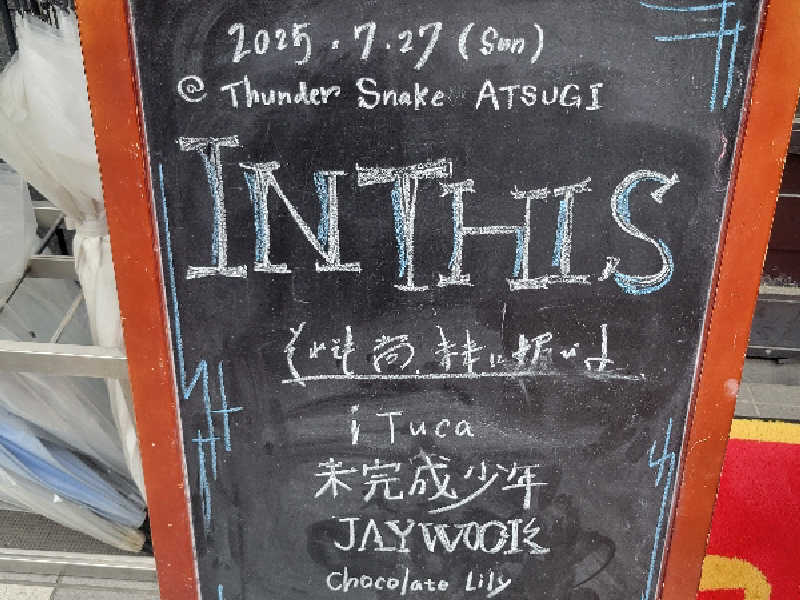 2025.7.27 (Sun)
@ Thunder Snake ATSUGI
INTHIS
i Tuca
未完成少年
JAYWOOK
Chocolate Lily